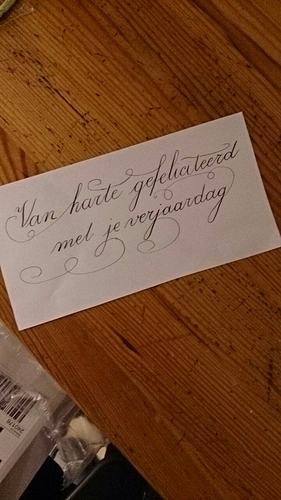 Van harte gefeliciteerd
met je verjaardag